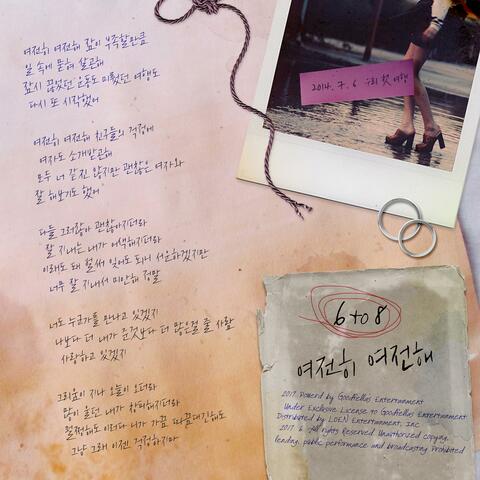 여전히 여전해 잠이 부족할만큼
일 속에 묻혀 살곤해
잠시 끊었던 운동도 미뤘던 여행도
다시 또 시작했어
여전히 여전해 친구들의 걱정에
여자도 소개받곤해
모두 너 같진 않지만 괜찮은 여자와
잘 해보기도 했어
다들 그러잖아 괜찮아지더라
잘 지내는 내가 어색해지더라
이래도 돼 벌써 잊어도 되니 서운하겠지만
너무 잘 지내서 미안해 정말
너도 누군가를 만나고 있겠지
나보다 더 내가 준것보다 더 많은걸 줄 사람
사랑하고 있겠지
그리움이 지나 오늘이 오더라
많이 울던 내가 창피해지더라
멀쩡해도 이러다 내가 가끔 따끔대긴해도
그냥 그래 이젠 걱정하지마
2014. 7. 6 첫 여행
6 to 8
여전히 여전해
2017. Powerd by Goodfellas Entertainment
Under Exclusive License to Goodfellas Entertainment
Distributed by LOEN Entertainment, Inc
2017. 6. All rights Reserved. Unauthorized copying,
lending, public performance and broadcasting prohibited